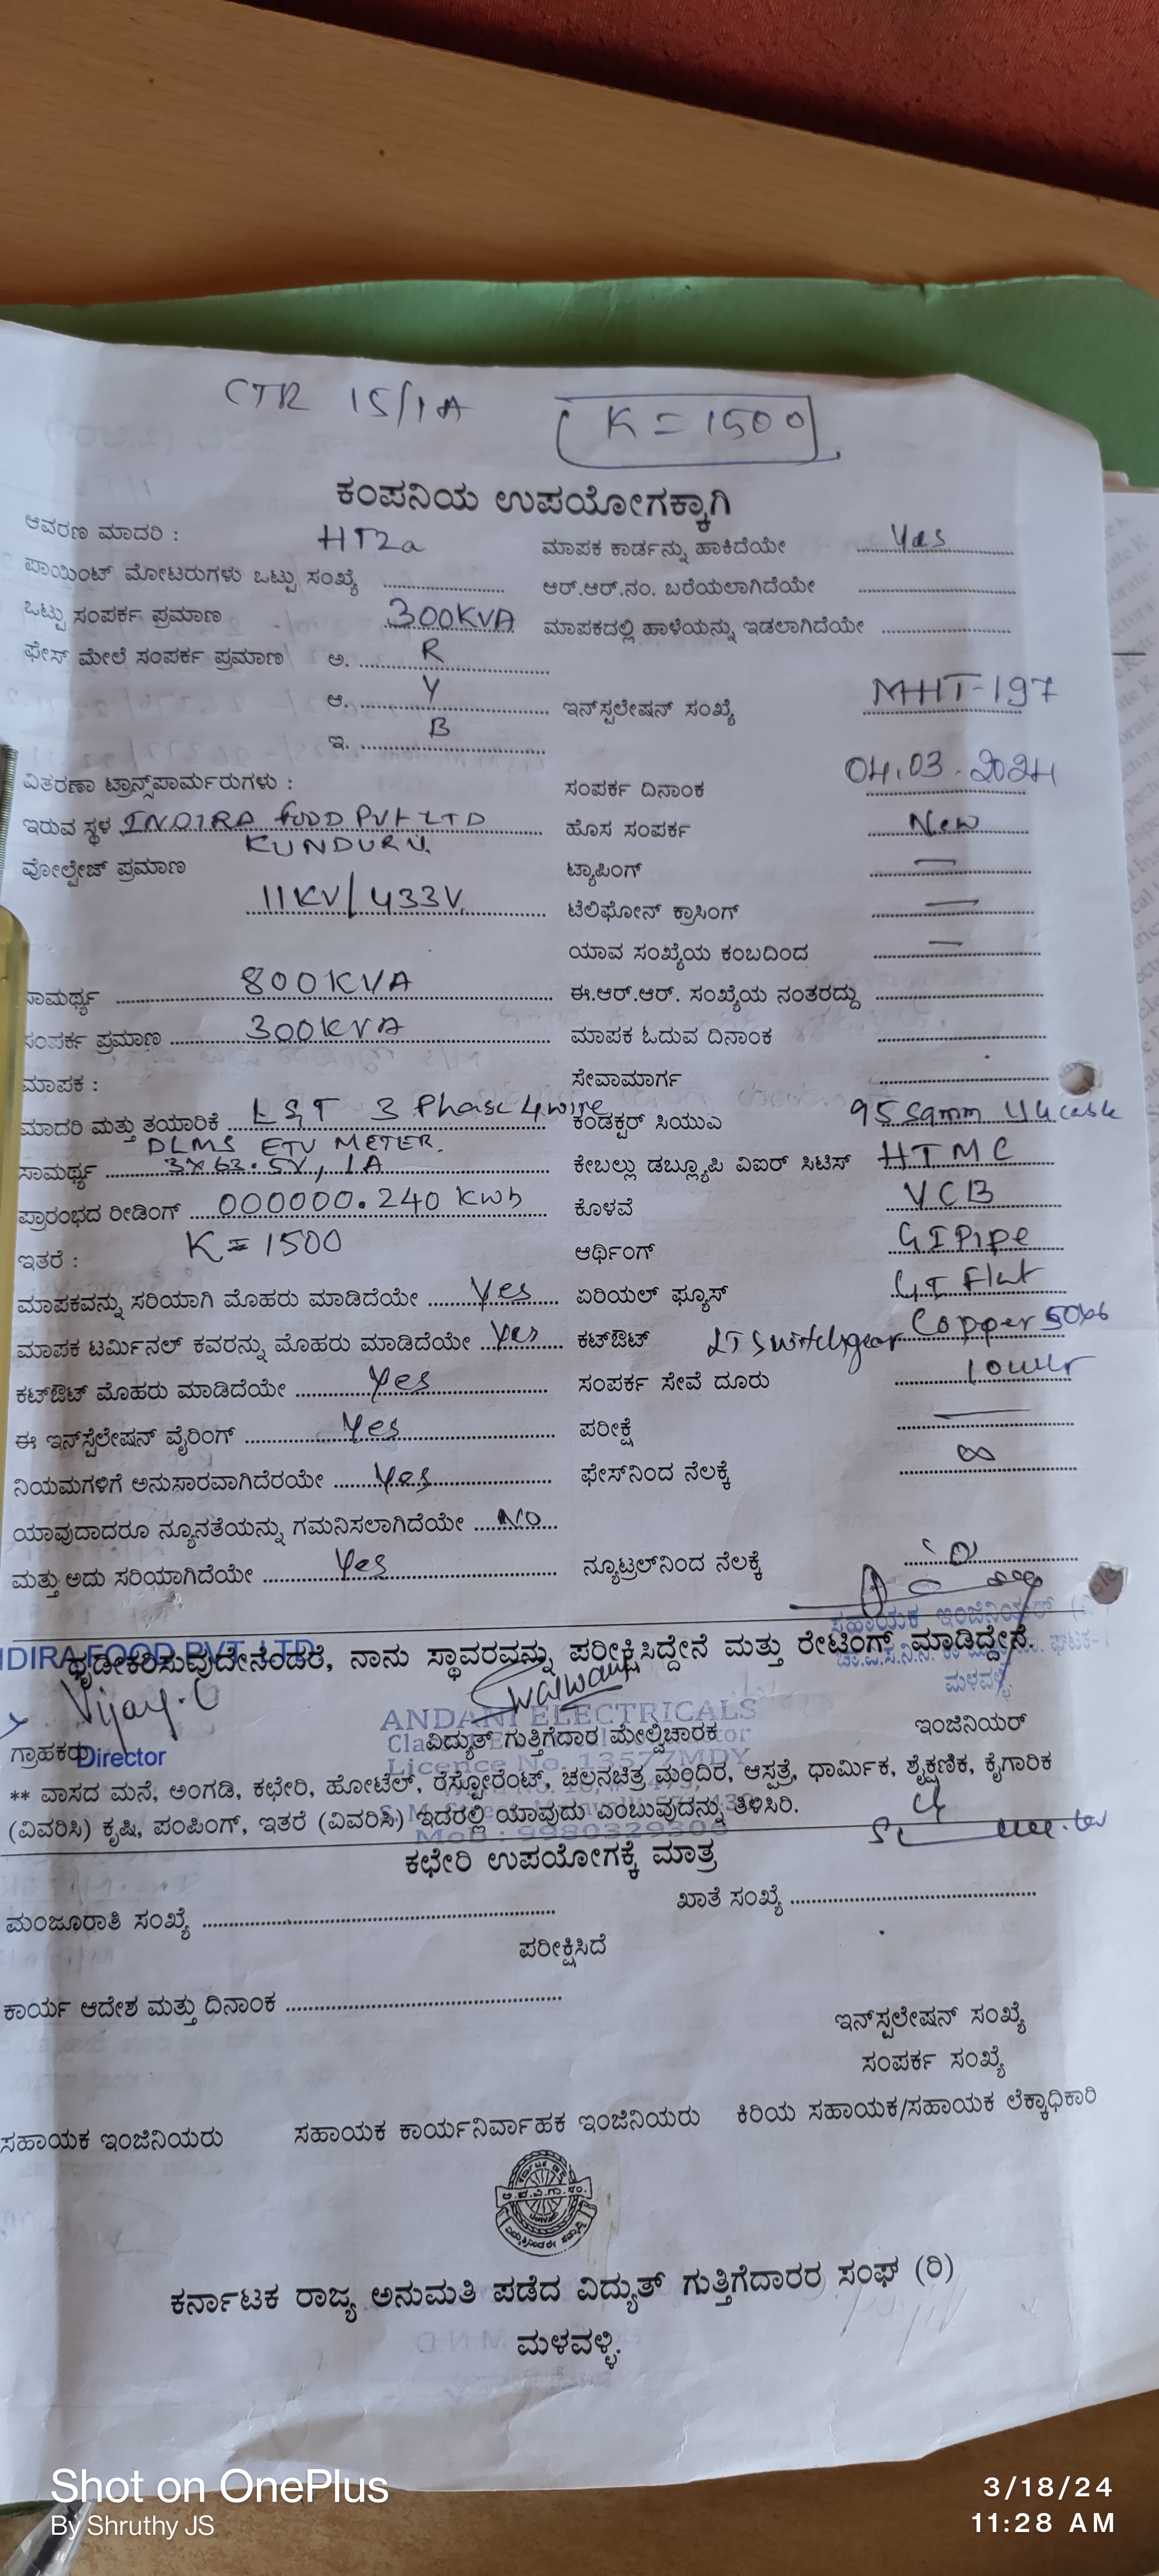 CTR 15/1A K = 1500
ಕಂಪನಿಯ ಉಪಯೋಗಕ್ಕಾಗಿ
ಆವರಣ ಮಾದರಿ : HT2a ಮಾಪಕ ಕಾರ್ಡನ್ನು ಹಾಕಿದೆಯೇ Yes
ಪಾಯಿಂಟ್ ಮೋಟರುಗಳು ಒಟ್ಟು ಸಂಖ್ಯೆ ಆರ್.ಆರ್.ನಂ. ಬರೆಯಲಾಗಿದೆಯೇ
ಒಟ್ಟು ಸಂಪರ್ಕ ಪ್ರಮಾಣ 300KVA ಮಾಪಕದಲ್ಲಿ ಹಾಳೆಯನ್ನು ಇಡಲಾಗಿದೆಯೇ
ಫೇಸ್ ಮೇಲೆ ಸಂಪರ್ಕ ಪ್ರಮಾಣ ಅ. R
ಆ. Y ಇನ್ಸ್ಟಲೇಷನ್ ಸಂಖ್ಯೆ MHT-197
ಇ. B
ವಿತರಣಾ ಟ್ರಾನ್ಸ್‌ಪಾರ್ಮರುಗಳು : ಸಂಪರ್ಕ ದಿನಾಂಕ 04.03.2024
ಇರುವ ಸ್ಥಳ INDIRA FOOD PVT LTD ಹೊಸ ಸಂಪರ್ಕ New
KUNDURU.
ವೋಲ್ಟೇಜ್ ಪ್ರಮಾಣ ಟ್ಯಾಪಿಂಗ್ —
11KV/433V. ಟೆಲಿಫೋನ್ ಕ್ರಾಸಿಂಗ್ —
ಯಾವ ಸಂಖ್ಯೆಯ ಕಂಬದಿಂದ —
ಸಾಮರ್ಥ್ಯ 800KVA ಈ.ಆರ್.ಆರ್. ಸಂಖ್ಯೆಯ ನಂತರದ್ದು
ಸಂಪರ್ಕ ಪ್ರಮಾಣ 300KVA ಮಾಪಕ ಓದುವ ದಿನಾಂಕ
ಮಾಪಕ : ಸೇವಾಮಾರ್ಗ
ಮಾದರಿ ಮತ್ತು ತಯಾರಿಕೆ L&T 3 Phase 4wire ಕಂಡಕ್ಟರ್ ಸಿಯುಎ 95 sqmm UG cable
DLMS ETV METER.
ಸಾಮರ್ಥ್ಯ 3X63.5V, 1A ಕೇಬಲ್ಲು ಡಬ್ಲ್ಯೂಪಿ ವಿಐರ್ ಸಿಟಿಸ್ HTMC
ಪ್ರಾರಂಭದ ರೀಡಿಂಗ್ 000000.240 kwh ಕೊಳವೆ VCB
ಇತರೆ : K = 1500 ಆರ್ಥಿಂಗ್ GI Pipe
ಮಾಪಕವನ್ನು ಸರಿಯಾಗಿ ಮೊಹರು ಮಾಡಿದೆಯೇ Yes ಏರಿಯಲ್ ಫ್ಯೂಸ್ GI Flat
ಮಾಪಕ ಟರ್ಮಿನಲ್ ಕವರನ್ನು ಮೊಹರು ಮಾಡಿದೆಯೇ Yes ಕಟ್‌ಔಟ್ LT Switchgear Copper 50x6
ಕಟ್‌ಔಟ್ ಮೊಹರು ಮಾಡಿದೆಯೇ Yes ಸಂಪರ್ಕ ಸೇವೆ ದೂರು
ಈ ಇನ್‌ಸ್ಟೆಲೇಷನ್ ವೈರಿಂಗ್ Yes ಪರೀಕ್ಷೆ —
ನಿಯಮಗಳಿಗೆ ಅನುಸಾರವಾಗಿದೆರಯೇ Yes ಫೇಸ್‌ನಿಂದ ನೆಲಕ್ಕೆ ∞
ಯಾವುದಾದರೂ ನ್ಯೂನತೆಯನ್ನು ಗಮನಿಸಲಾಗಿದೆಯೇ NO
ಮತ್ತು ಅದು ಸರಿಯಾಗಿದೆಯೇ Yes ನ್ಯೂಟ್ರಲ್‌ನಿಂದ ನೆಲಕ್ಕೆ
ಸಹಾಯಕ ಇಂಜಿನಿಯರ್
ಧೃಡೀಕರಿಸುವುದೇನೆಂದರೆ, ನಾನು ಸ್ಥಾವರವನ್ನು ಪರೀಕ್ಷಿಸಿದ್ದೇನೆ ಮತ್ತು ರೇಟಿಂಗ್ ಮಾಡಿದ್ದೇನೆ.
NDIRA FOOD PVT. LTD.
ಮಳವಳ್ಳಿ.
Vijay. C
ANDANI ELECTRICALS
ಗ್ರಾಹಕರು Director ವಿದ್ಯುತ್ ಗುತ್ತಿಗೆದಾರ ಮೇಲ್ವಿಚಾರಕ ಇಂಜಿನಿಯರ್
Licence No. 13577MDY
** ವಾಸದ ಮನೆ, ಅಂಗಡಿ, ಕಛೇರಿ, ಹೋಟೆಲ್, ರೆಸ್ಟೋರೆಂಟ್, ಚಲನಚಿತ್ರ ಮಂದಿರ, ಆಸ್ಪತ್ರೆ, ಧಾರ್ಮಿಕ, ಶೈಕ್ಷಣಿಕ, ಕೈಗಾರಿಕ
(ವಿವರಿಸಿ) ಕೃಷಿ, ಪಂಪಿಂಗ್, ಇತರೆ (ವಿವರಿಸಿ) ಇದರಲ್ಲಿ ಯಾವುದು ಎಂಬುವುದನ್ನು ತಿಳಿಸಿರಿ.
Mob : 9980329308
ಕಛೇರಿ ಉಪಯೋಗಕ್ಕೆ ಮಾತ್ರ
ಮಂಜೂರಾತಿ ಸಂಖ್ಯೆ ಖಾತೆ ಸಂಖ್ಯೆ
ಪರೀಕ್ಷಿಸಿದೆ
ಕಾರ್ಯ ಆದೇಶ ಮತ್ತು ದಿನಾಂಕ
ಇನ್‌ಸ್ಟಲೇಷನ್ ಸಂಖ್ಯೆ
ಸಂಪರ್ಕ ಸಂಖ್ಯೆ
ಸಹಾಯಕ ಇಂಜಿನಿಯರು ಸಹಾಯಕ ಕಾರ್ಯನಿರ್ವಾಹಕ ಇಂಜಿನಿಯರು ಕಿರಿಯ ಸಹಾಯಕ/ಸಹಾಯಕ ಲೆಕ್ಕಾಧಿಕಾರಿ
ಕರ್ನಾಟಕ ರಾಜ್ಯ ಅನುಮತಿ ಪಡೆದ ವಿದ್ಯುತ್ ಗುತ್ತಿಗೆದಾರರ ಸಂಘ (ರಿ)
ಮಳವಳ್ಳಿ.
Shot on OnePlus
By Shruthy JS
3/18/24
11:28 AM